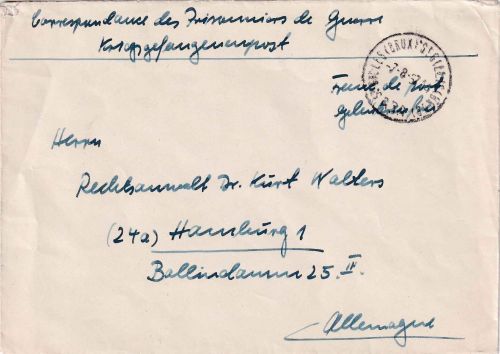 Correspondance des Prisonniers de Guerre
Kriegsgefangenenpost
Franc de port
Gebührenfrei
Herrn
Rechtsanwalt Dr. Kurt Walters
(24a) Hamburg 1
Ballindamm 25. II.
Allemagne